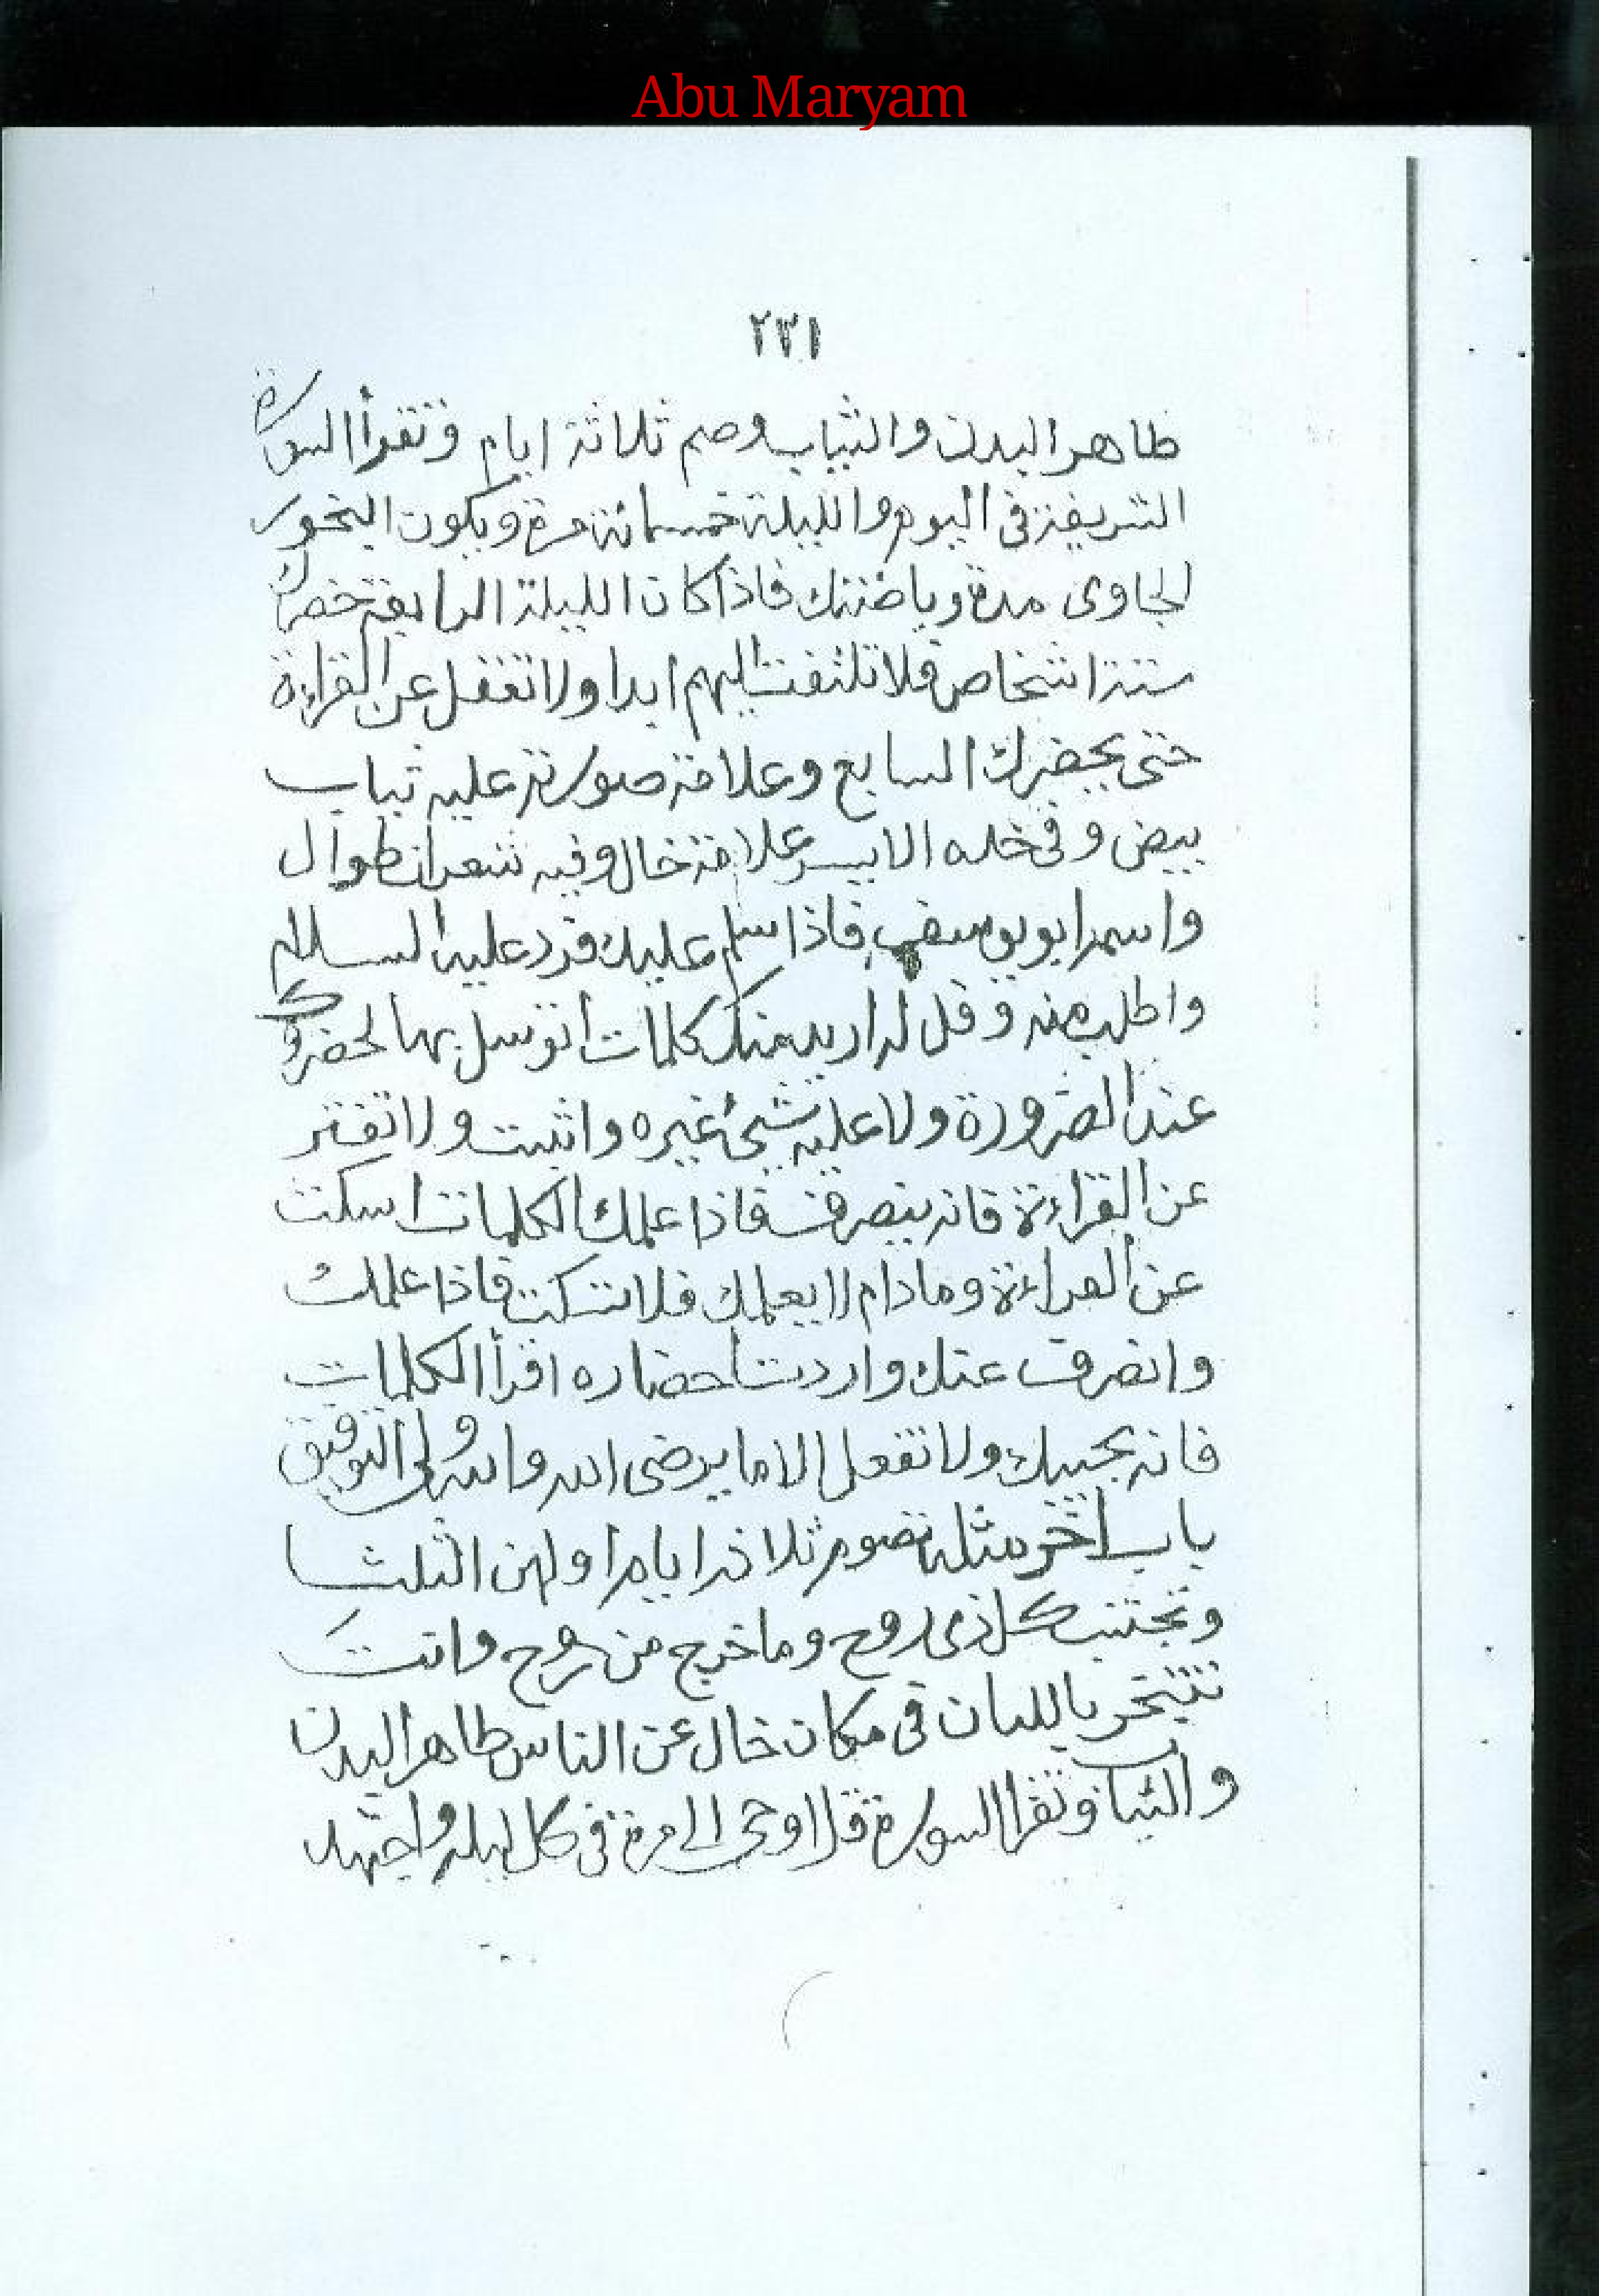 Abu Maryam
٢٣١
طاهر البدن والثياب وصم ثلاثة ايام وتقرأ السورة
الشريفة فى اليوم والليلة خمسمائة مرة ويكون البخور
الجاوى مدة رياضتك فاذا كان الليلة الرابعة تحضرك
ستة اشخاص فلا تلتفت اليهم ابدا ولا تغفل عن القراءة
حتى يحضرك السابع وعلامة صورته عليه ثياب
بيض وفى خده الايسر علامة خال وفيه شعرات طوال
واسمه ابو يوسف فاذا سلم عليك فرد عليه السلام
واطلب منه وقل له اريد منك كلمات اتوسل بها لحضورك
عند الضرورة ولا عليه شىء غيره واثبت ولا تفتر
عن القراءة فانه ينصرف فاذا علمك الكلمات اسكت
عن القراءة وما دام لا يعلمك فلا تسكت فاذا علمك
وانصرف عنك واردت احضاره اقرأ الكلمات
فانه يجيبك ولا تفعل الا ما يرضى الله والله ولى التوفيق
باب اخر مثله تصوم ثلاثة ايام اولهن الثلثا
وتجتنب كل ذى روح وما خرج من روح وانت
تتبخر باللبان فى مكان خال عن الناس طاهر البدن
والثياب وتقرا السورة قل اوحى الى مرة فى كل ليله واجتهد